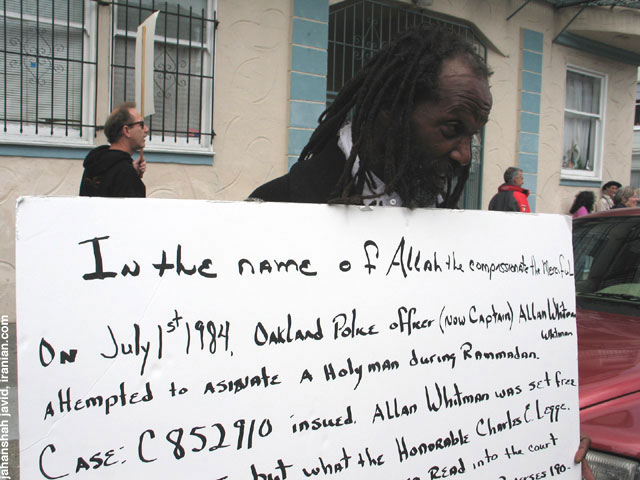 In the name of Allah the compassionate the Merciful
ON July 1st 1984, Oakland Police officer (now Captain) Allan Whitman
Whitman
Attempted to asinate a Holy man during Rammadan.
Case: C852910 insued. Allan Whitman was set free
but what the Honorable Charles C. Legge.
Read into the court
jahanshah javid, iranian.com